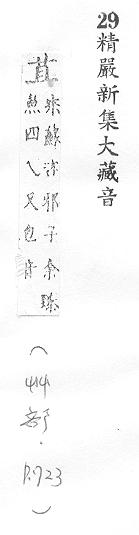 29精嚴新集大藏音
苴
蘇邪子余
四又包音
(艸部.P.723)